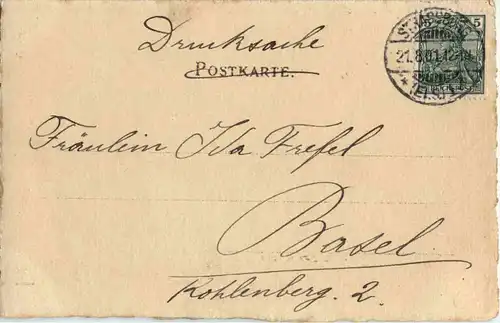 Drucksache
POSTKARTE.
5
STRASSBURG
21.8.01.12-1N.
* (ELS.)
Fräulein Ida Frefel
Basel
Kohlenberg. 2.